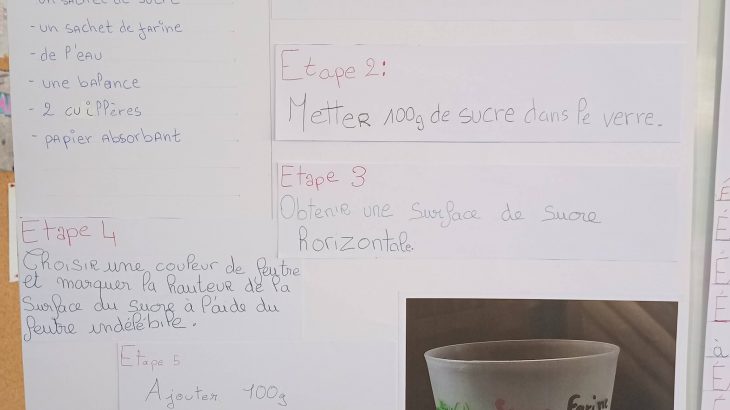 - un sachet de sucre
- un sachet de farine
- de l'eau
- une balance
- 2 cuillères
- papier absorbant
Etape 2:
Metter 100g de sucre dans le verre.
Etape 3
Obtenir une surface de sucre
horizontale.
Etape 4
Choisir une couleur de feutre
et marquer la hauteur de la
surface du sucre à l'aide du
feutre indélébile.
Etape 5
Ajouter 100g
Farine
à